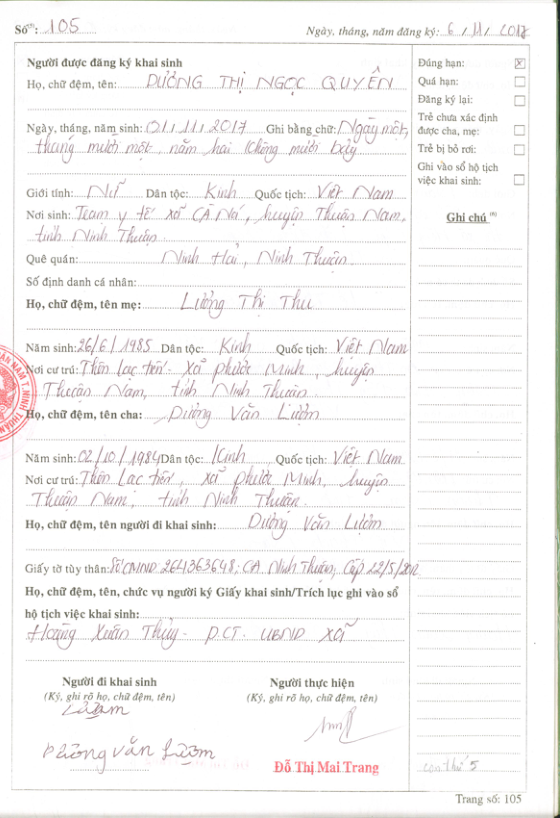 Số⁽⁵⁾: 105 Ngày, tháng, năm đăng ký: 6 / 11 / 2017
Người được đăng ký khai sinh
Họ, chữ đệm, tên: DƯƠNG THỊ NGỌC QUYÊN
Ngày, tháng, năm sinh: 01/11/2017 Ghi bằng chữ: Ngày một,
tháng mười một, năm hai không mười bảy
Giới tính: Nữ Dân tộc: Kinh Quốc tịch: Việt Nam
Nơi sinh: Trạm y tế xã Cà Ná, huyện Thuận Nam,
tỉnh Ninh Thuận
Quê quán: Ninh Hải, Ninh Thuận
Số định danh cá nhân:
Họ, chữ đệm, tên mẹ: Lương Thị Thu
Năm sinh: 26/6/1985 Dân tộc: Kinh Quốc tịch: Việt Nam
Nơi cư trú: Thôn Lạc tiến, xã Phước Minh, huyện
Thuận Nam, tỉnh Ninh Thuận
Họ, chữ đệm, tên cha: Dương Văn Lượm
Năm sinh: 02/10/1984 Dân tộc: Kinh Quốc tịch: Việt Nam
Nơi cư trú: Thôn Lạc tiến, xã Phước Minh, huyện
Thuận Nam, tỉnh Ninh Thuận.
Họ, chữ đệm, tên người đi khai sinh: Dương Văn Lượm
Giấy tờ tùy thân: Số CMND 264363648, CA Ninh Thuận, Cấp 22/5/2012
Họ, chữ đệm, tên, chức vụ người ký Giấy khai sinh/Trích lục ghi vào sổ
hộ tịch việc khai sinh:
Hoàng Xuân Thủy - P.CT. UBND xã
Người đi khai sinh Người thực hiện
(Ký, ghi rõ họ, chữ đệm, tên) (Ký, ghi rõ họ, chữ đệm, tên)
Lượm
Dương Văn Lượm
Đỗ Thị Mai Trang
Đúng hạn: x
Quá hạn:
Đăng ký lại:
Trẻ chưa xác định
được cha, mẹ:
Trẻ bị bỏ rơi:
Ghi vào sổ hộ tịch
việc khai sinh:
Ghi chú ⁽⁶⁾
con thứ 5
Trang số: 105